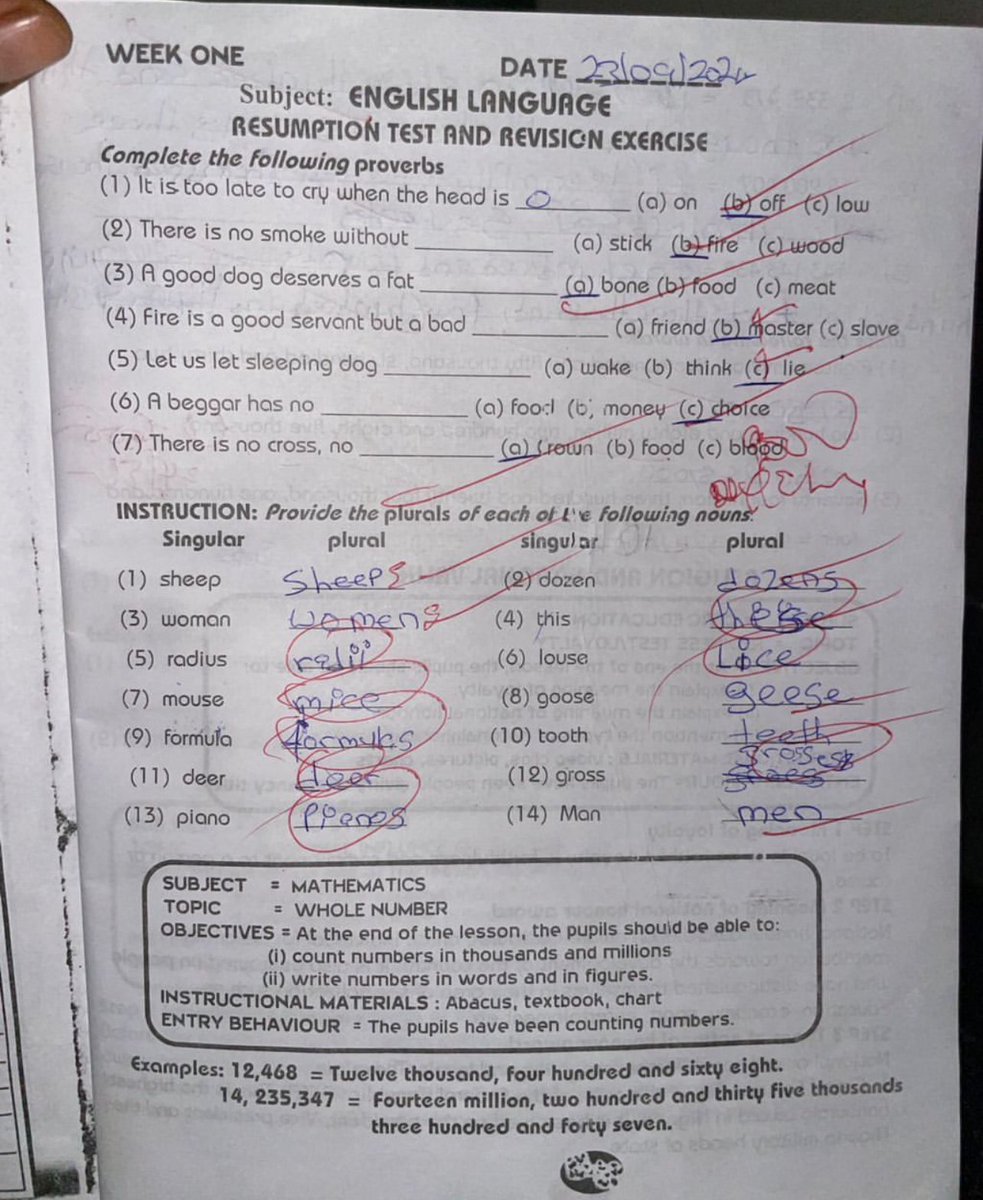 WEEK ONE
DATE 23/09/202
Subject: ENGLISH LANGUAGE
RESUMPTION TEST AND REVISION EXERCISE
Complete the following proverbs
(1) It is too late to cry when the head is ___ (a) on (b) off (c) low
(2) There is no smoke without ___ (a) stick (b) fire (c) wood
(3) A good dog deserves a fat ___ (a) bone (b) food (c) meat
(4) Fire is a good servant but a bad ___ (a) friend (b) master (c) slave
(5) Let us let sleeping dog ___ (a) wake (b) think (c) lie
(6) A beggar has no ___ (a) food (b) money (c) choice
(7) There is no cross, no ___ (a) Crown (b) food (c) blood
INSTRUCTION: Provide the plurals of each of the following nouns:
Singular plural singular plural
(1) sheep sheeps (2) dozen dozens
(3) woman women (4) this these
(5) radius radii (6) louse Lice
(7) mouse mice (8) goose geese
(9) formula formulas (10) tooth teeth
(11) deer deer (12) gross grosses
(13) piano Pianos (14) Man men
SUBJECT = MATHEMATICS
TOPIC = WHOLE NUMBER
OBJECTIVES = At the end of the lesson, the pupils should be able to:
(i) count numbers in thousands and millions
(ii) write numbers in words and in figures.
INSTRUCTIONAL MATERIALS : Abacus, textbook, chart
ENTRY BEHAVIOUR = The pupils have been counting numbers.
Examples: 12,468 = Twelve thousand, four hundred and sixty eight.
14, 235,347 = Fourteen million, two hundred and thirty five thousands
three hundred and forty seven.